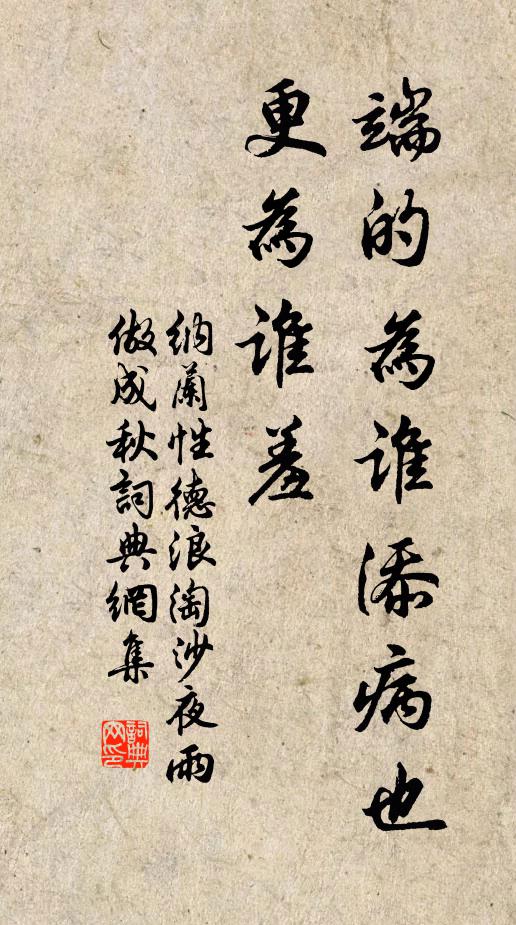 端的為誰添病也
更為誰羞
納蘭性德浪淘沙夜雨
做成秋詞典網集
詞典
网印